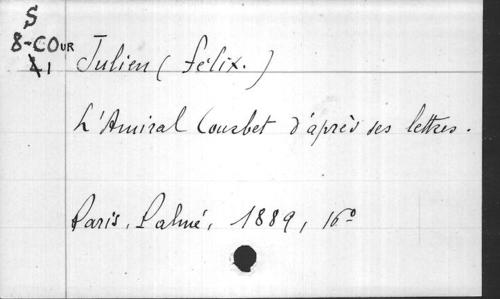 S
8-COUR
41
Julien (Félix.)
L'Amiral Courbet d'après ses lettres.
Paris, Palmé, 1889, 16º